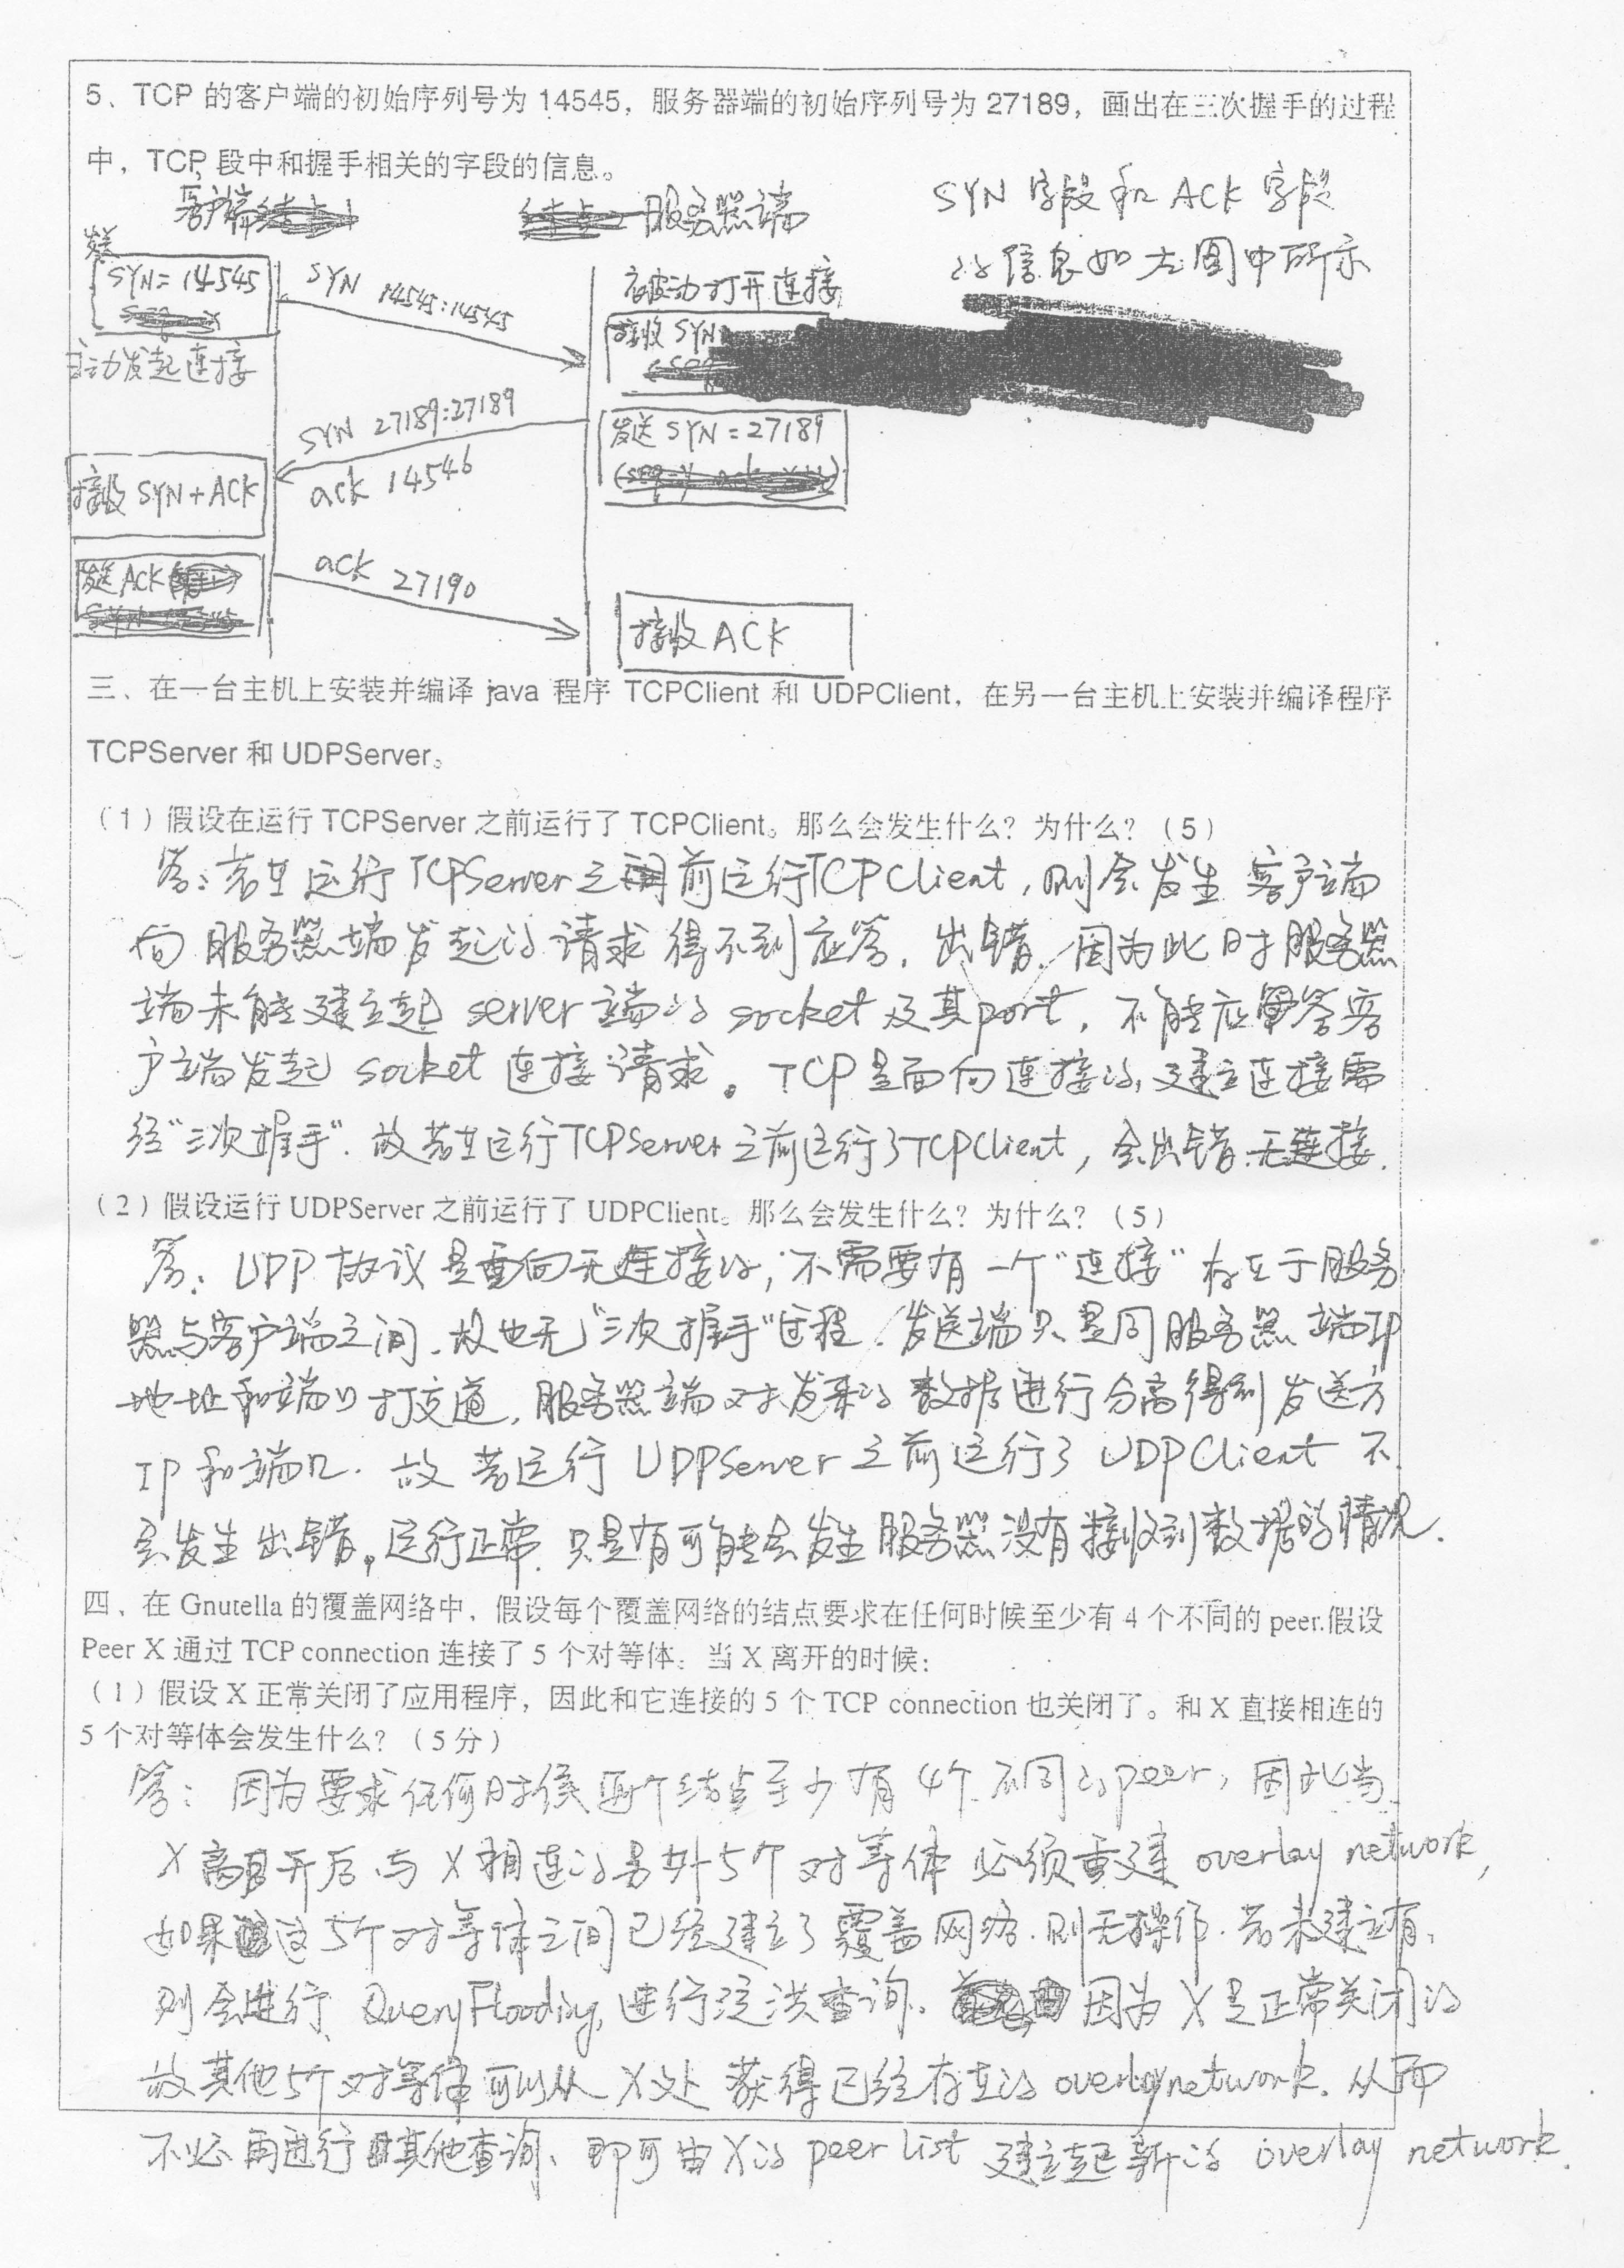 5、TCP 的客户端的初始序列号为 14545，服务器端的初始序列号为 27189，画出在三次握手的过程
中，TCP 段中和握手相关的字段的信息。
客户端
服务器端
SYN 字段和 ACK 字段
的信息如左图中所示
发送
SYN=14545
SYN 14545:14545
主动发起连接
被动打开连接
接收 SYN
SYN 27189:27189
ack 14546
发送 SYN=27189
接收 SYN+ACK
发送 ACK
ack 27190
接收 ACK
三、在一台主机上安装并编译 java 程序 TCPClient 和 UDPClient，在另一台主机上安装并编译程序
TCPServer 和 UDPServer。
（1）假设在运行 TCPServer 之前运行了 TCPClient。那么会发生什么？为什么？（5）
答：若在运行TCPServer之前运行TCPClient，则会发生 客户端
向服务器端发起的请求得不到应答，出错。因为此时服务器
端未能建立起 server 端的 socket 及其port，不能应答客
户端发起 socket 连接请求。TCP是面向连接的，建立连接需
经"三次握手"。故若在运行TCPServer之前运行了TCPClient，会出错.无连接.
（2）假设运行 UDPServer 之前运行了 UDPClient。那么会发生什么？为什么？（5）
答：UDP协议是面向无连接的，不需要有一个"连接"存在于服务
器与客户端之间、故也无"三次握手"过程.发送端只是同服务器端IP
地址和端口打交道，服务器端对发来的数据进行分离得到发送方
IP和端口. 故若运行 UDPServer 之前运行了 UDPClient 不
会发生出错。运行正常.只是有可能会发生服务器没有接收到数据的情况.
四、在 Gnutella 的覆盖网络中，假设每个覆盖网络的结点要求在任何时候至少有 4 个不同的 peer.假设
Peer X 通过 TCP connection 连接了 5 个对等体。当 X 离开的时候：
（1）假设 X 正常关闭了应用程序，因此和它连接的 5 个 TCP connection 也关闭了。和 X 直接相连的
5 个对等体会发生什么？（5 分）
答：因为要求任何时候每个结点至少有 4个不同的peer，因此当
X 离开后、与 X 相连的另外5个对等体必须重建 overlay network，
如果这5个对等体之间已经建立了覆盖网络.则无操作.若未建立有，
则会进行 QueryFlooding，进行泛洪查询、因为 X 是正常关闭的
故其他5个对等体可以从 X处获得已经存在的 overlaynetwork. 从而
不必再进行其他查询、即可由X的 peer list 建立起新的 overlay network.